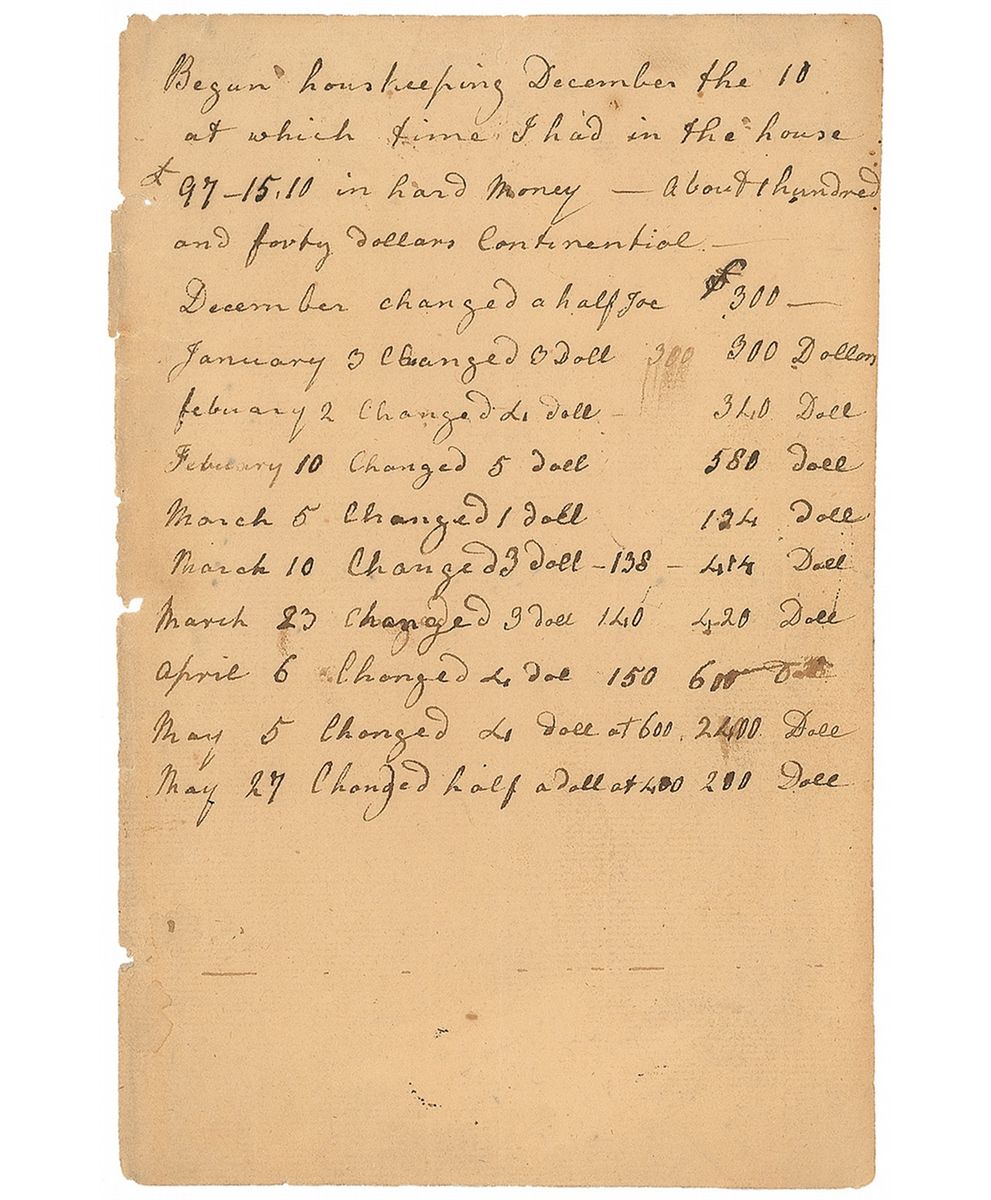 Begun houskeeping December the 10
at which time I had in the house
£ 97-15.10 in hard Money — about 1 hundred
and forty dollars Continential —
December changed a half Joe 300 —
January 3 Changed 3 Doll 300 300 Dollars
febuary 2 Changed 4 doll - 340 Doll
Febuary 10 Changed 5 doll 580 doll
March 5 Changed 1 doll 124 doll
March 10 Changed 3 doll - 138 - 414 Doll
March 23 Changed 3 doll 140 420 Doll
April 6 Changed 4 dol 150 600 Doll
May 5 Changed 4 doll at 600. 2400 Doll
May 27 Changed half a doll at 400 200 Doll